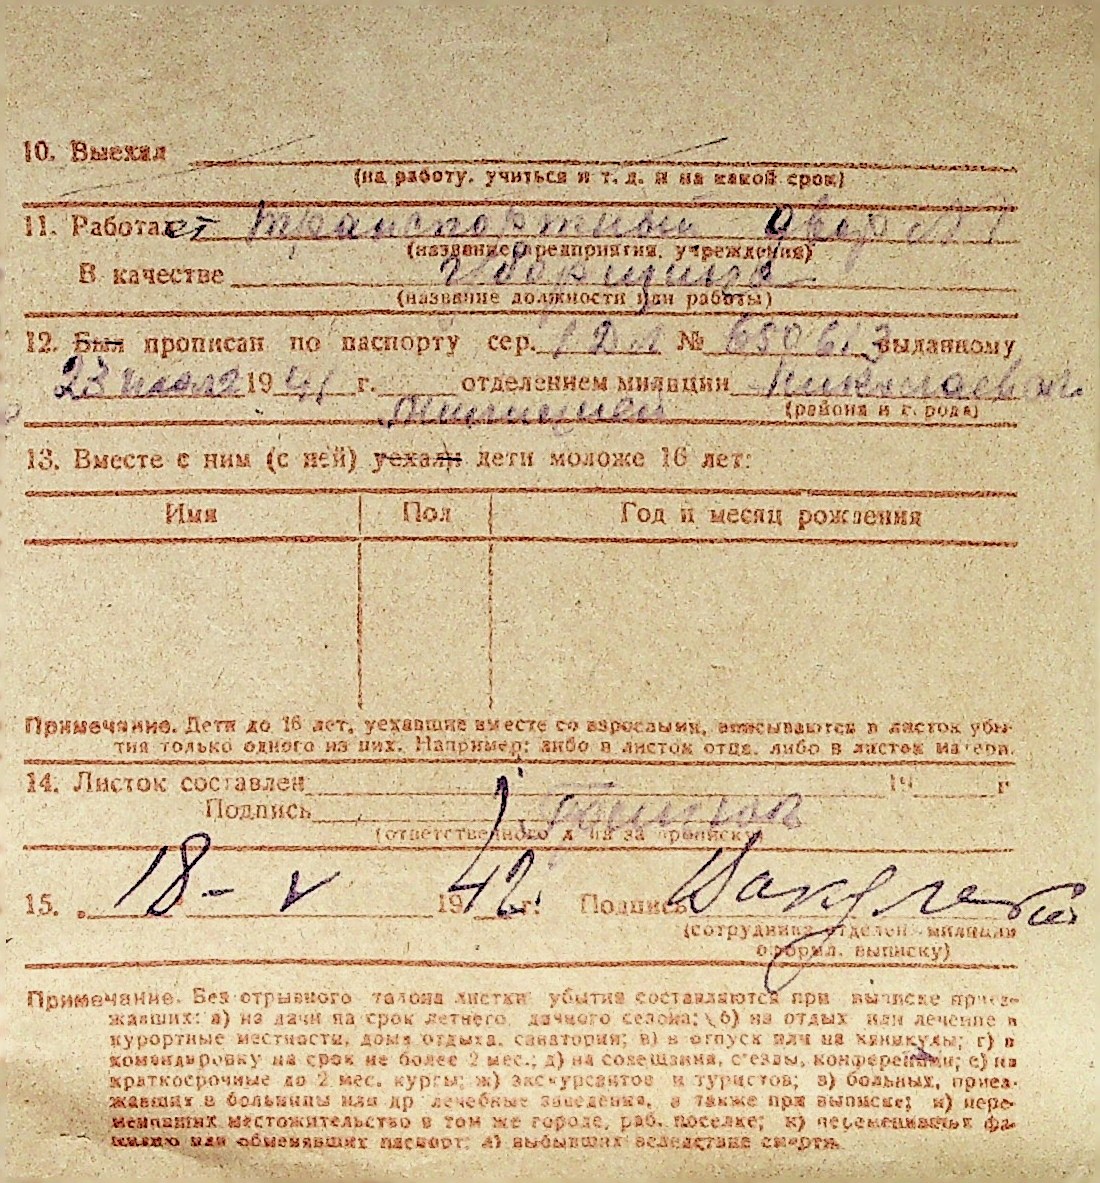 10. Выехал
(на работу, учиться и т. д. и на какой срок)
11. Работает транспортный двор №1
(название предприятия, учреждения)
В качестве уборщица
(название должности или работы)
12. Был прописан по паспорту сер. № 650613 выданному
23 июля 1941 г. отделением милиции Николаевой
милицией (района и города)
13. Вместе с ним (с ней) уехали дети моложе 16 лет:
Имя Пол Год и месяц рождения
Примечание. Дети до 16 лет, уехавшие вместе со взрослыми, вписываются в листок убы-
тия только одного из них. Например: либо в листок отца, либо в листок матери.
14. Листок составлен 19 г
Подпись
(ответственного л на за прописку)
15. 18 - V 1942 г. Подпись
(сотрудника отделен. милиции
оформл. выписку)
Примечание. Без отрывного талона листки убытия составляются при выписке приез-
жавших: а) на дачи на срок летнего дачного сезона; б) на отдых или лечение в
курортные местности, дома отдыха, санатории; в) в отпуск или на каникулы; г) в
командировку на срок не более 2 мес.; д) на совещания, съезды, конференции; е) на
краткосрочные до 2 мес. курсы; ж) экскурсантов и туристов; з) больных, приез-
жавших в больницы или др лечебные заведения, а также при выписке; и) пере-
менивших местожительство в том же городе, раб. поселке; к) переменивших фа-
милию или обменявших паспорт; л) выбывших вследствие смерти.